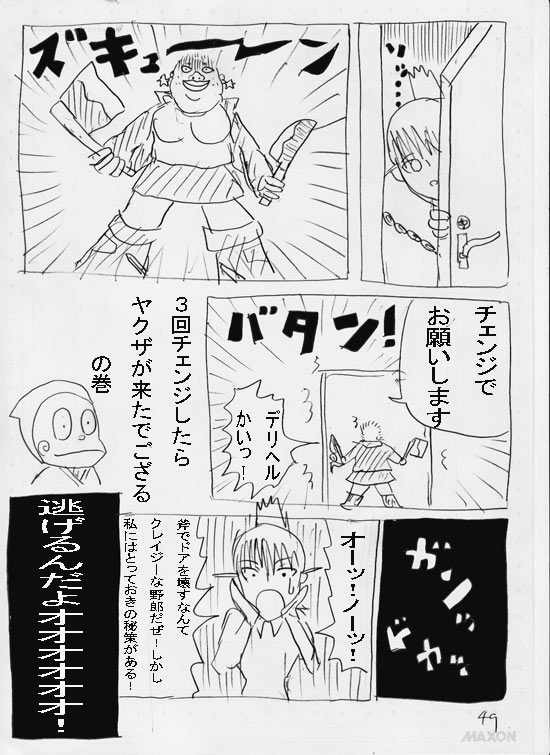 ソ〜〜…
ズキューーーン
チェンジで
お願いします
バタン!
デリヘル
かいっ!
3回チェンジしたら
ヤクザが来たでござる
の巻
ガンッ
ドガッ
オーッ!ノーッ!
斧でドアを壊すなんて
クレイジーな野郎だぜ!しかし
私にはとっておきの秘策がある!
逃げるんだよオオオオオオオ!
49
MAXON